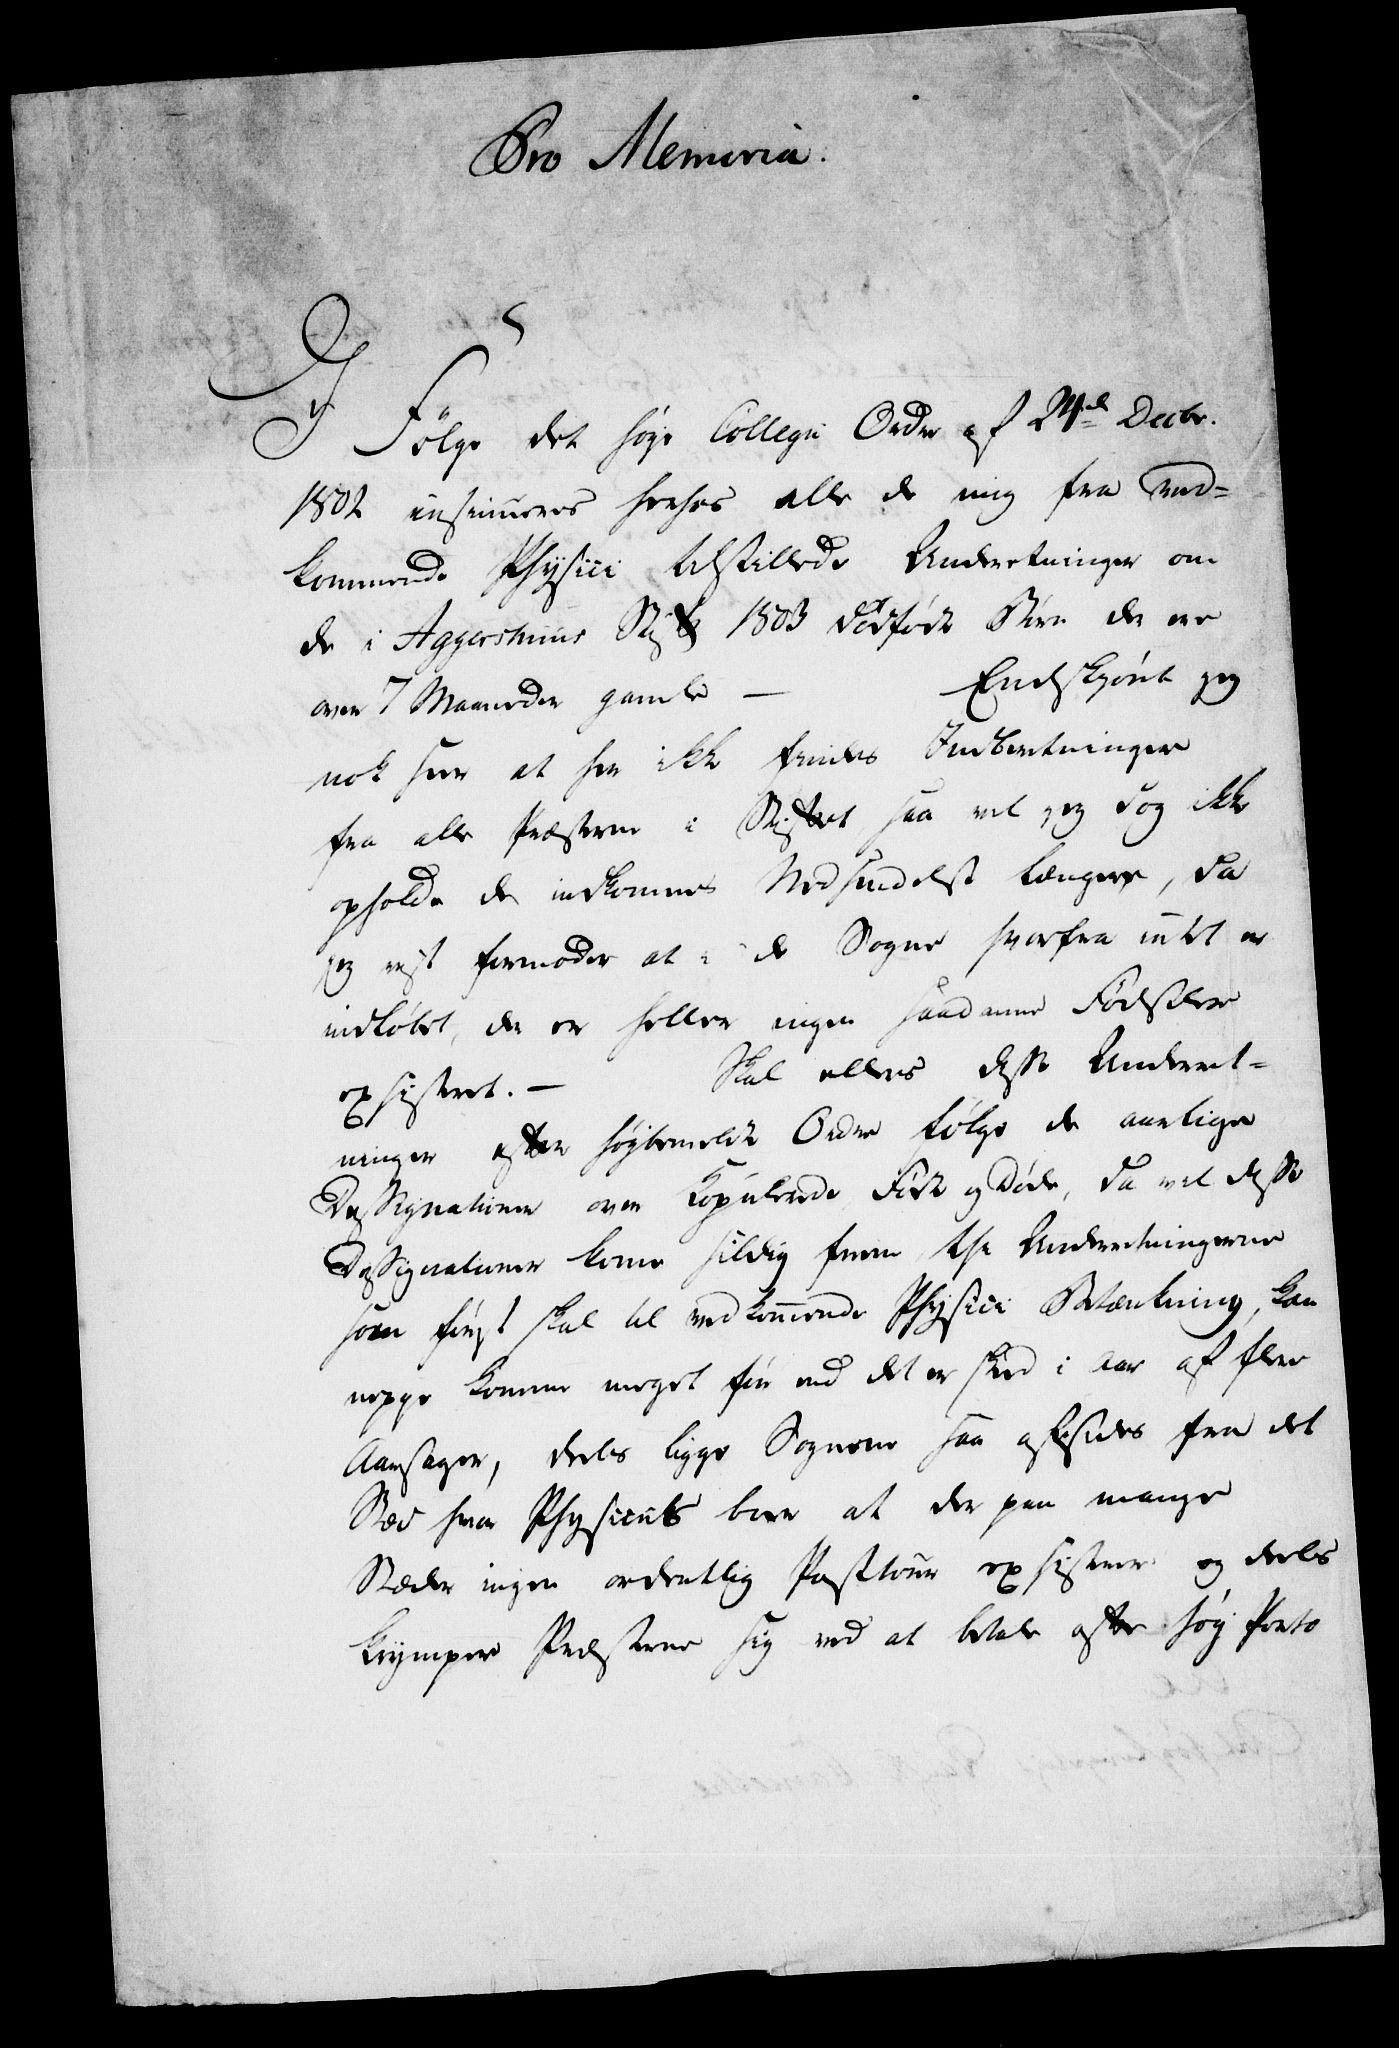 Pro Memoria.
I Følge det høje Collegii Ordre af 24de Decbr.
1802 insinueres herhos alle de mig fra ved-
kommende Physici tilstillede Underetninger om
de i Aggershuus Stift 1803 dødfødte Børn der ere
over 7 Maaneder gamle — Endskjønt jeg
nok seer at her ikke findes Indberetninger
fra alle Præsterne i Stiftet saa vil jeg dog ikke
opholde de indkomnes Nedsendelse længere, da
jeg vist formoder at i de Sogne hvorfra intet er
indløbet, der er heller ingen saadanne Fødsler
exsisteret. — Skal ellers disse Underet-
ninger efter højbemelte Ordre følge de aarlige
Dessignationer over Kopulerede Fødte og Døde, da vil disse
Dessignationer komme sildig frem, thi Underetningerne
som først skal til vedkommende Physici Betænkning, kan
neppe komme meget før end det er skeed i Aar af flere
Aarsager, deels ligge Sognene saa afsides fra det
Sted hvor Physicus boer at der paa mange
Stæder ingen ordentlig Posttour exsisterer og deels
krympere Præsterne sig ved at betale ofte høj Porto